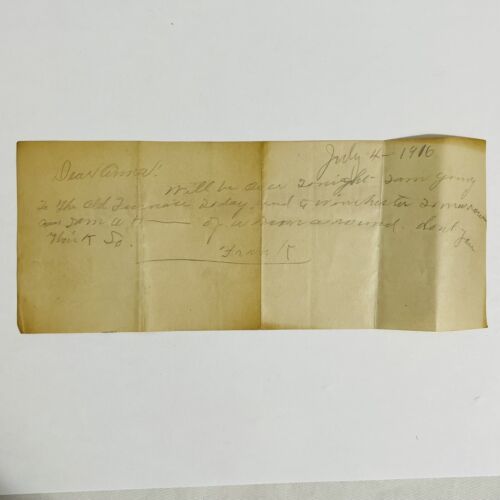 July 4 - 1916
Dear Anna!
Will be over tonight. I am going
to the Old Furnace today, and to Winchester tomorrow
I am a H—— of a runaround. don't you
think so.
Frank